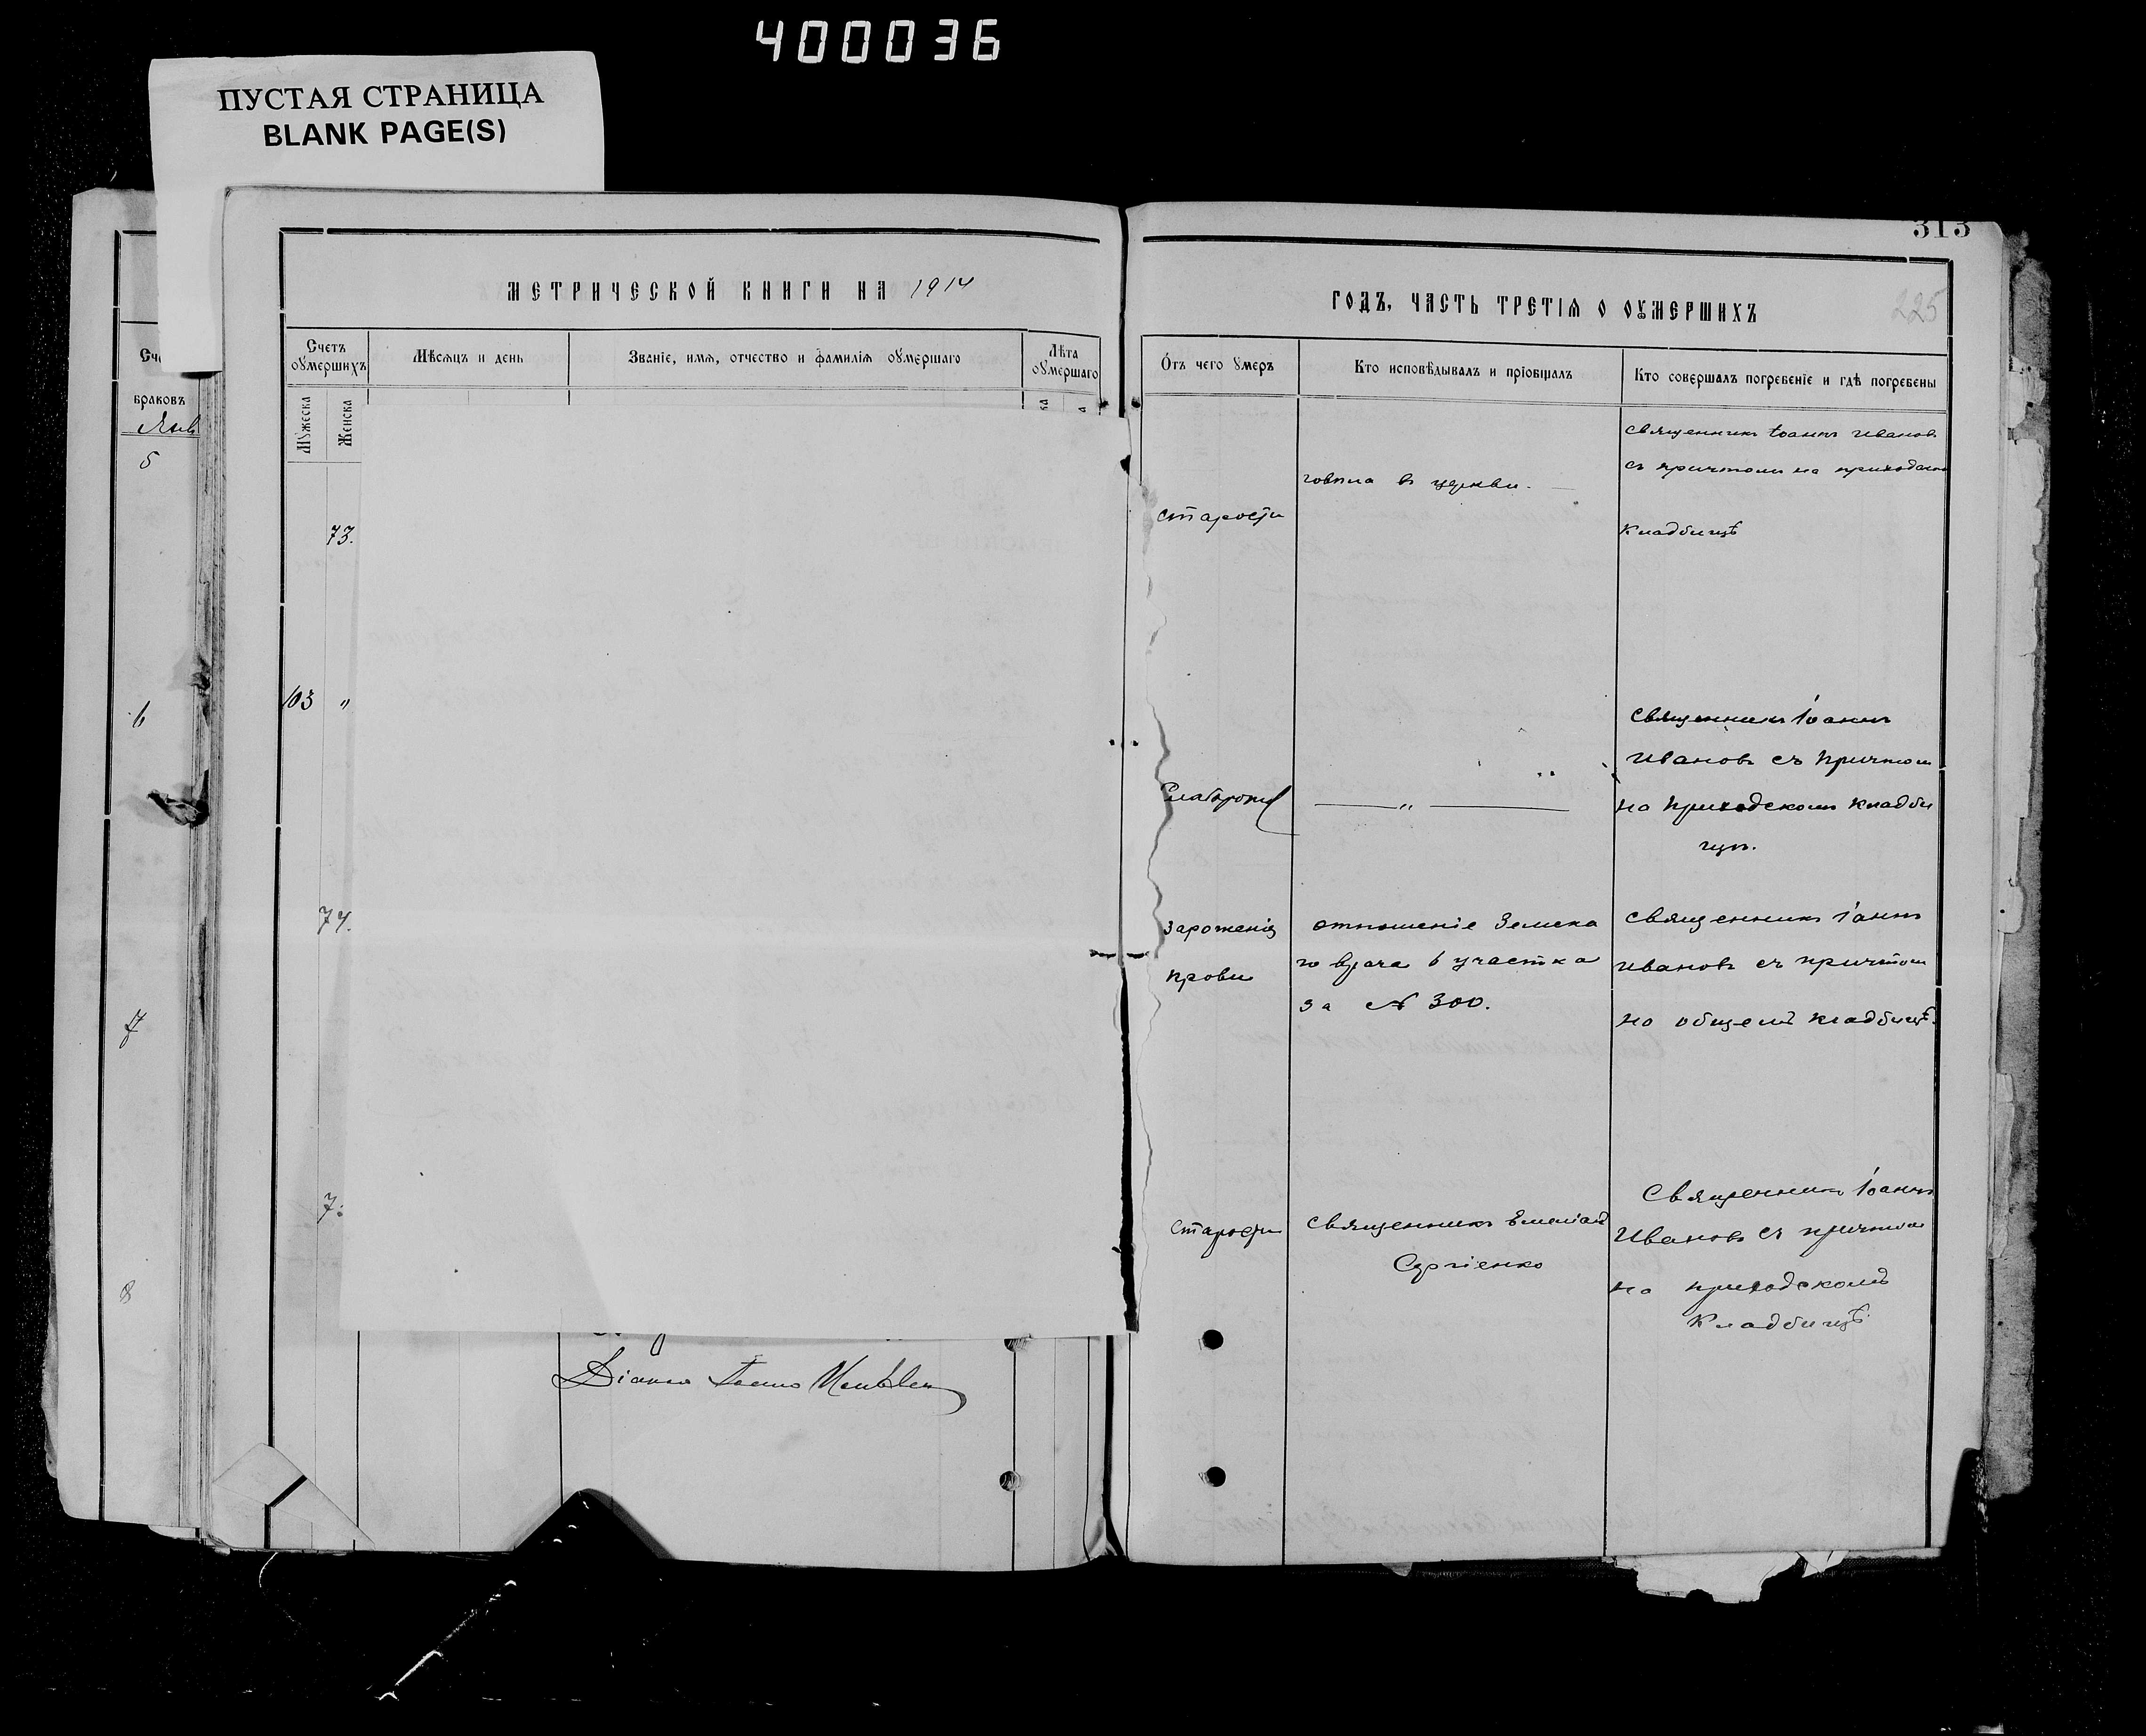 400036
ПУСТАЯ СТРАНИЦА
BLANK PAGE(S)
браковъ
Янв
5
6
7
8
МЕТРИЧЕСКОЙ КНИГИ НА 1914
Счетъ оумершихъ
Мѣсяцъ и день
Званіе, имя, отчество и фамилія оумершаго
Лѣта оумершаго
Мужеска
Женска
73.
103 "
74.
7
313
225
ГОДЪ, ЧАСТЬ ТРЕТІЯ О ОУМЕРШИХЪ
Отъ чего умеръ
Кто исповѣдывалъ и пріобщалъ
Кто совершалъ погребеніе и гдѣ погребены
старости
въ церкви.
священникъ Іоаннъ Ивановъ
съ причтомъ на приходском
кладбищѣ
— " —
священникъ Іоаннъ
Ивановъ съ причтом
на приходскомъ кладби
щѣ.
зароженія
крови
отношеніе Земска
го врача 6 участка
за № 300.
священникъ Іаннъ
Ивановъ съ причтом
на общемъ кладбищѣ.
старости
священникъ
Сергіенко
Священникъ Іоаннъ
Ивановъ съ причтом
на приходскомъ
кладбищѣ.